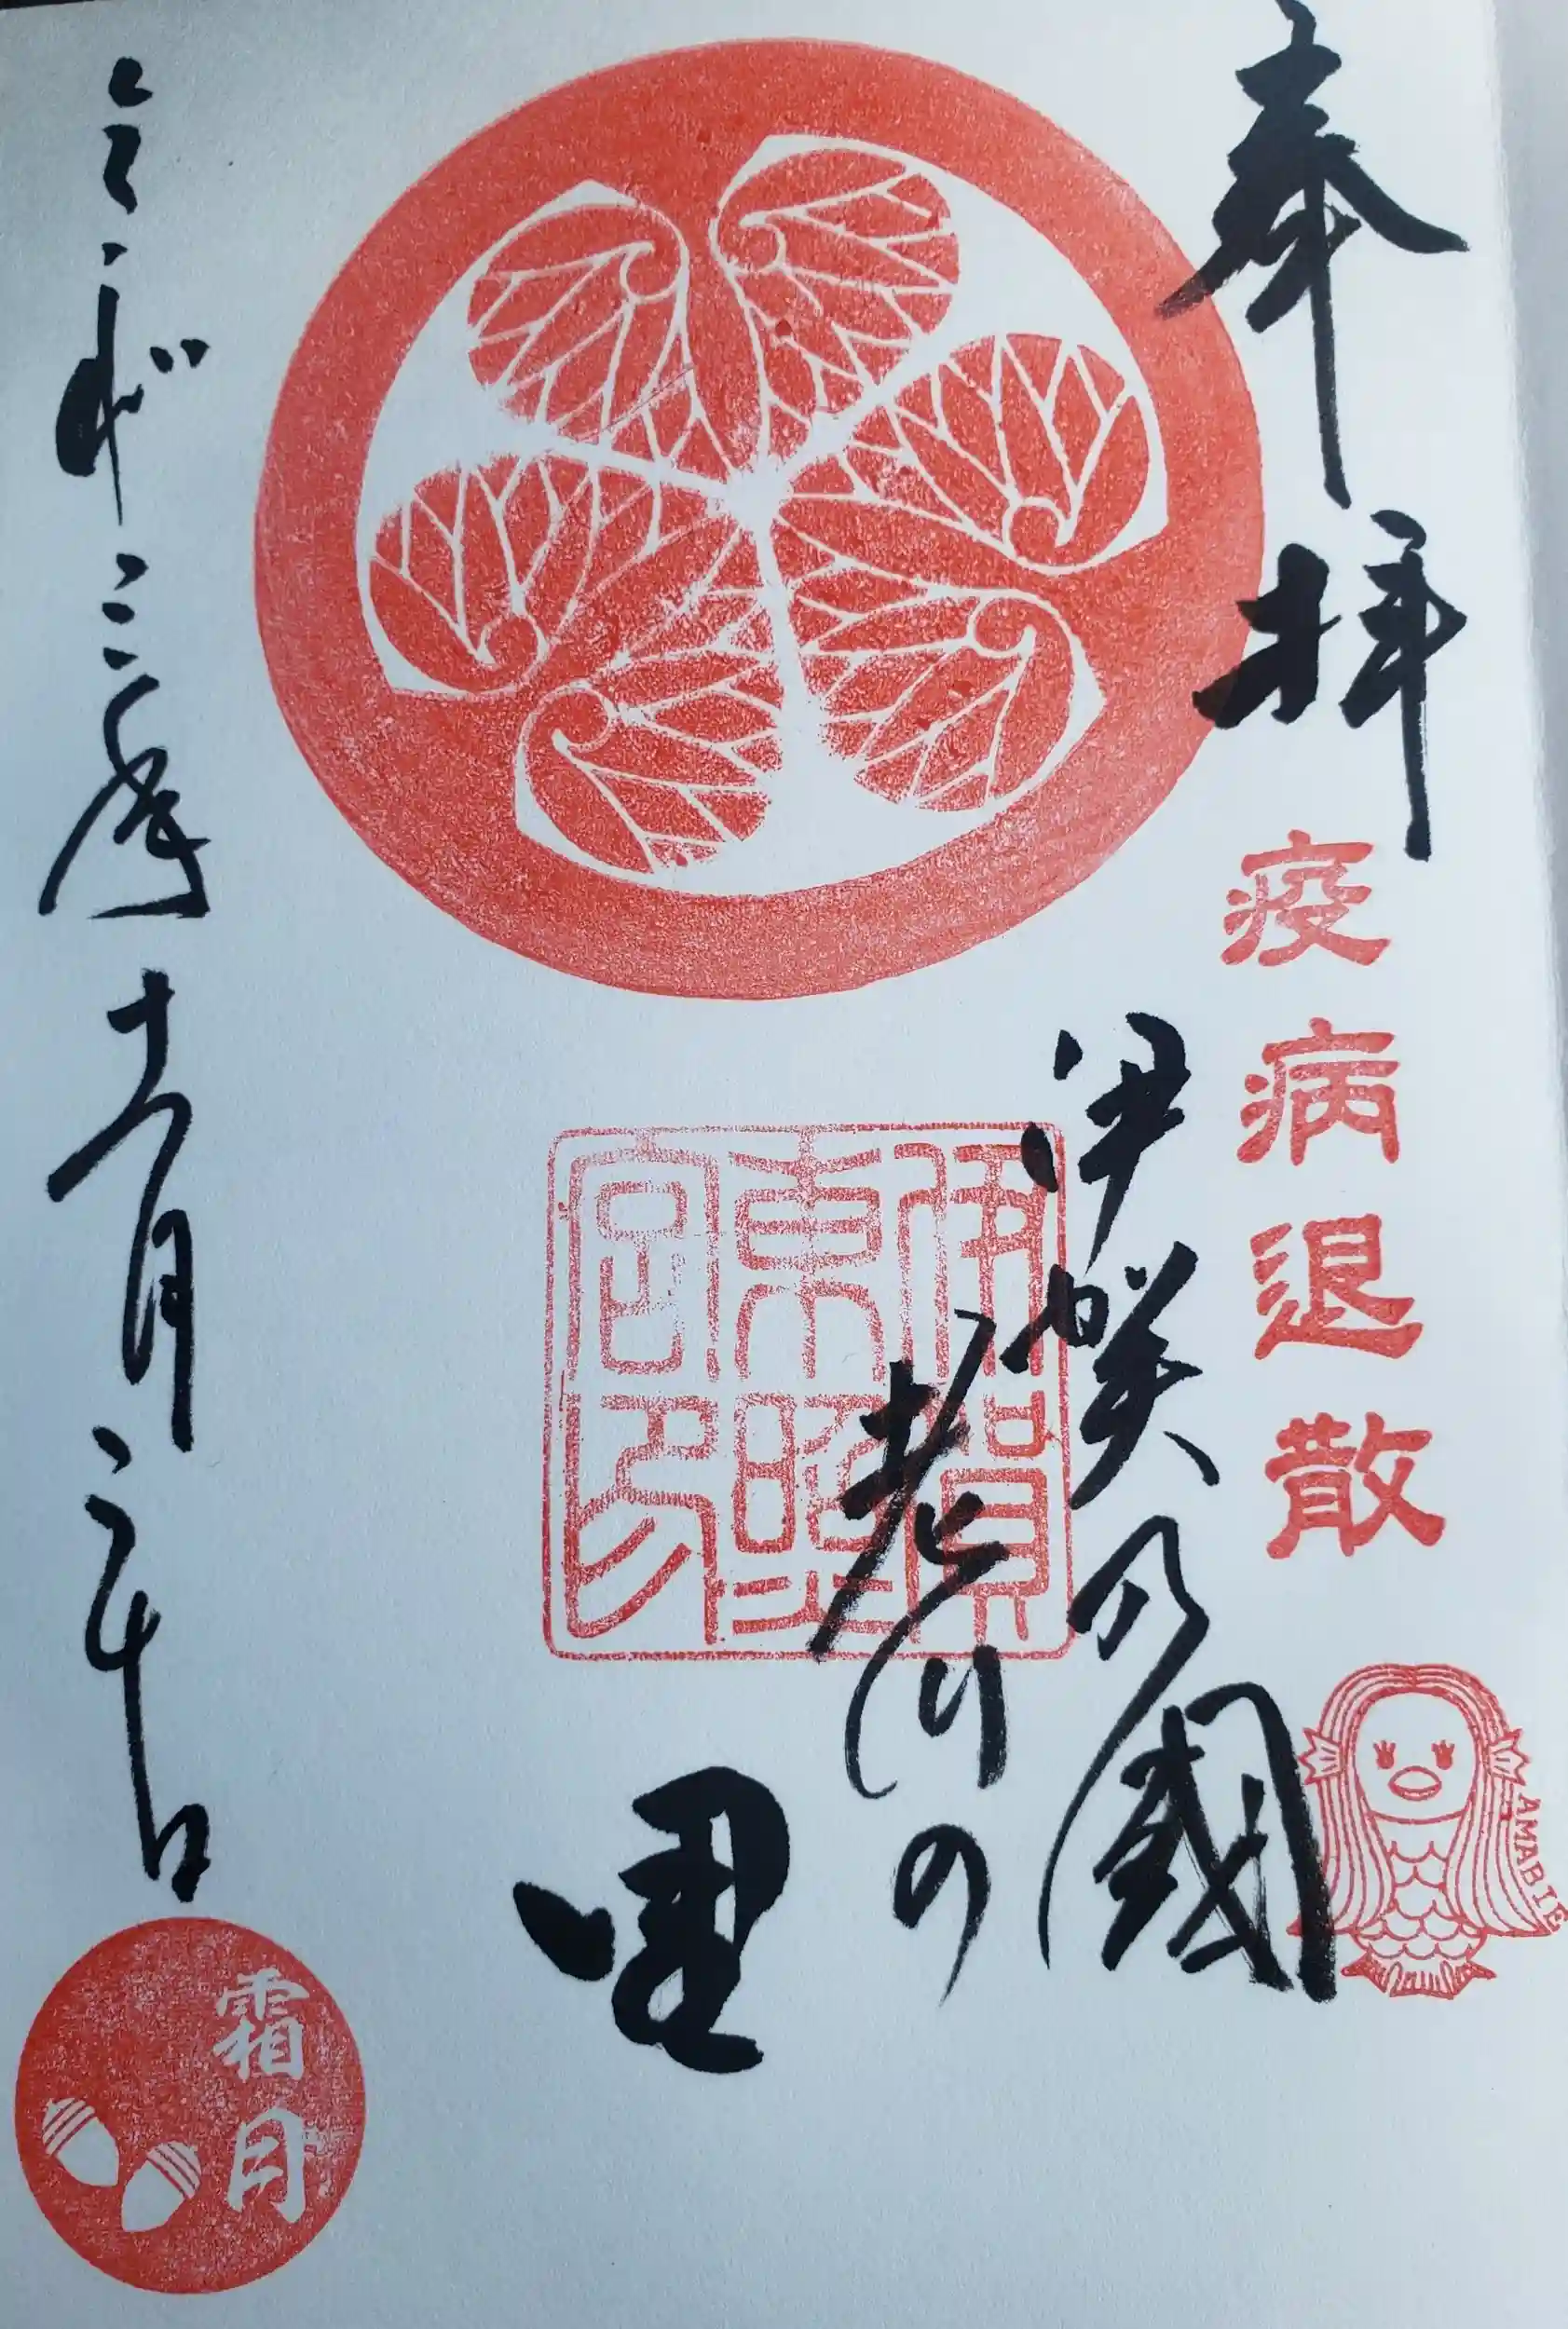 奉拝
疫病退散
AMABIE
伊賀乃國
老川の
里
伊賀
東照
宮印
令和三年十一月二十日
霜月